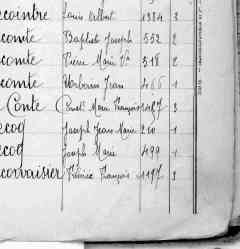 ecointre Louis Albert 1384 3
ecomte Baptiste Joseph 552 2
ecomte Pierre Marie 518 2
ecomte Urbain Jean 466 1
e Conte Marie François 1467 3
ecoq Joseph Jean Marie 260 1
ecoq Joseph Marie 499 1
ecorvaisier François 1197 3